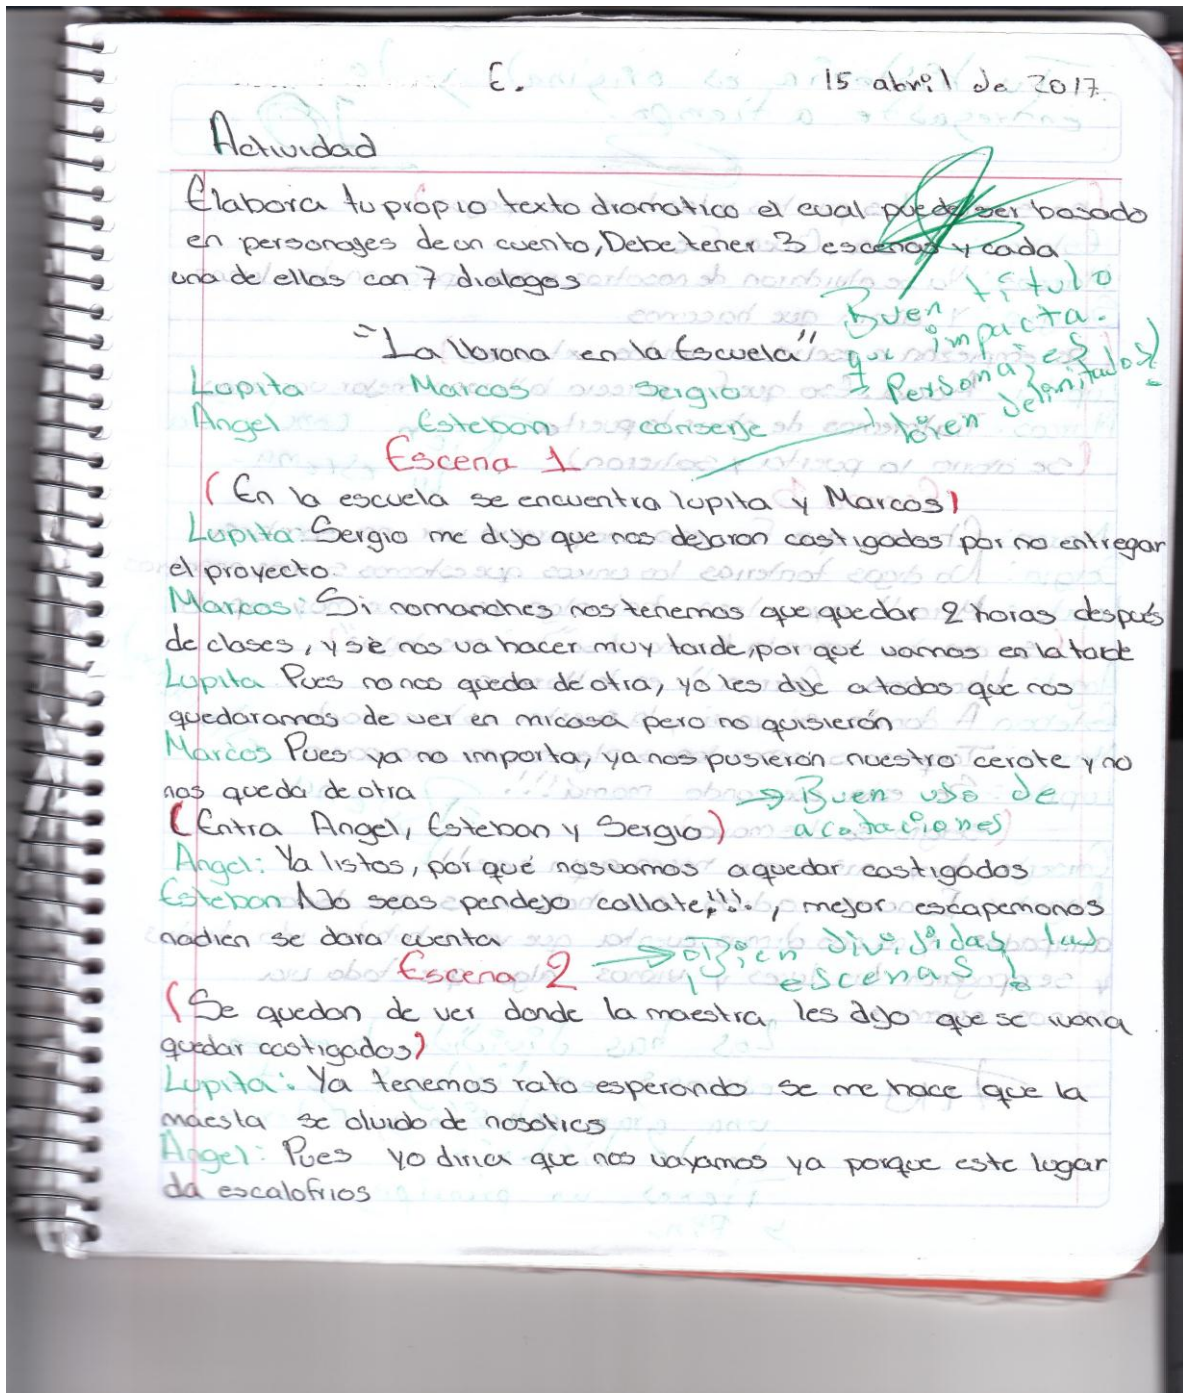 E. 15 abril de 2017.
Actividad
Elabora tu própio texto dramatico el cual puede ser basado
en personages de un cuento, Debe tener 3 escenas y cada
una de ellas con 7 dialogos
Buen título
que impacta.
"La llorona en la Escuela"
→ Personajes
bien delimitados!
Lupita Marcos Sergio
Angel Esteban conserje
Escena 1
(En la escuela se encuentra lupita y Marcos)
Lupita: Sergio me dijo que nos dejaron castigados por no entregar
el proyecto.
Marcos: Si nomanches nos tenemos que quedar 2 horas después
de clases, y sé nos va hacer muy tarde, por qué vamos en la tarde
Lupita Pues no nos queda de otra, yo les dije a todos que nos
quedaramos de ver en mi casa pero no quisierón
Marcos Pues ya no importa, ya nos pusierón nuestro cerote y no
nos queda de otra
→ Buen uso de
acotaciones
(Entra Angel, Esteban y Sergio)
Angel: Ya listos, por qué nos vamos a quedar castigados
Esteban No seas pendejo callate!!!, mejor escapemonos
nadien se dara cuenta
Escena 2
→ ¡Bien divididas las
escenas!
(Se quedan de ver donde la maestra les dijo que se
quedar castigados)
Lupita: Ya tenemos rato esperando se me hace que la
maesta se olvido de nosotros
Angel: Pues yo diria que nos vayamos ya porque este lugar
da escalofrios